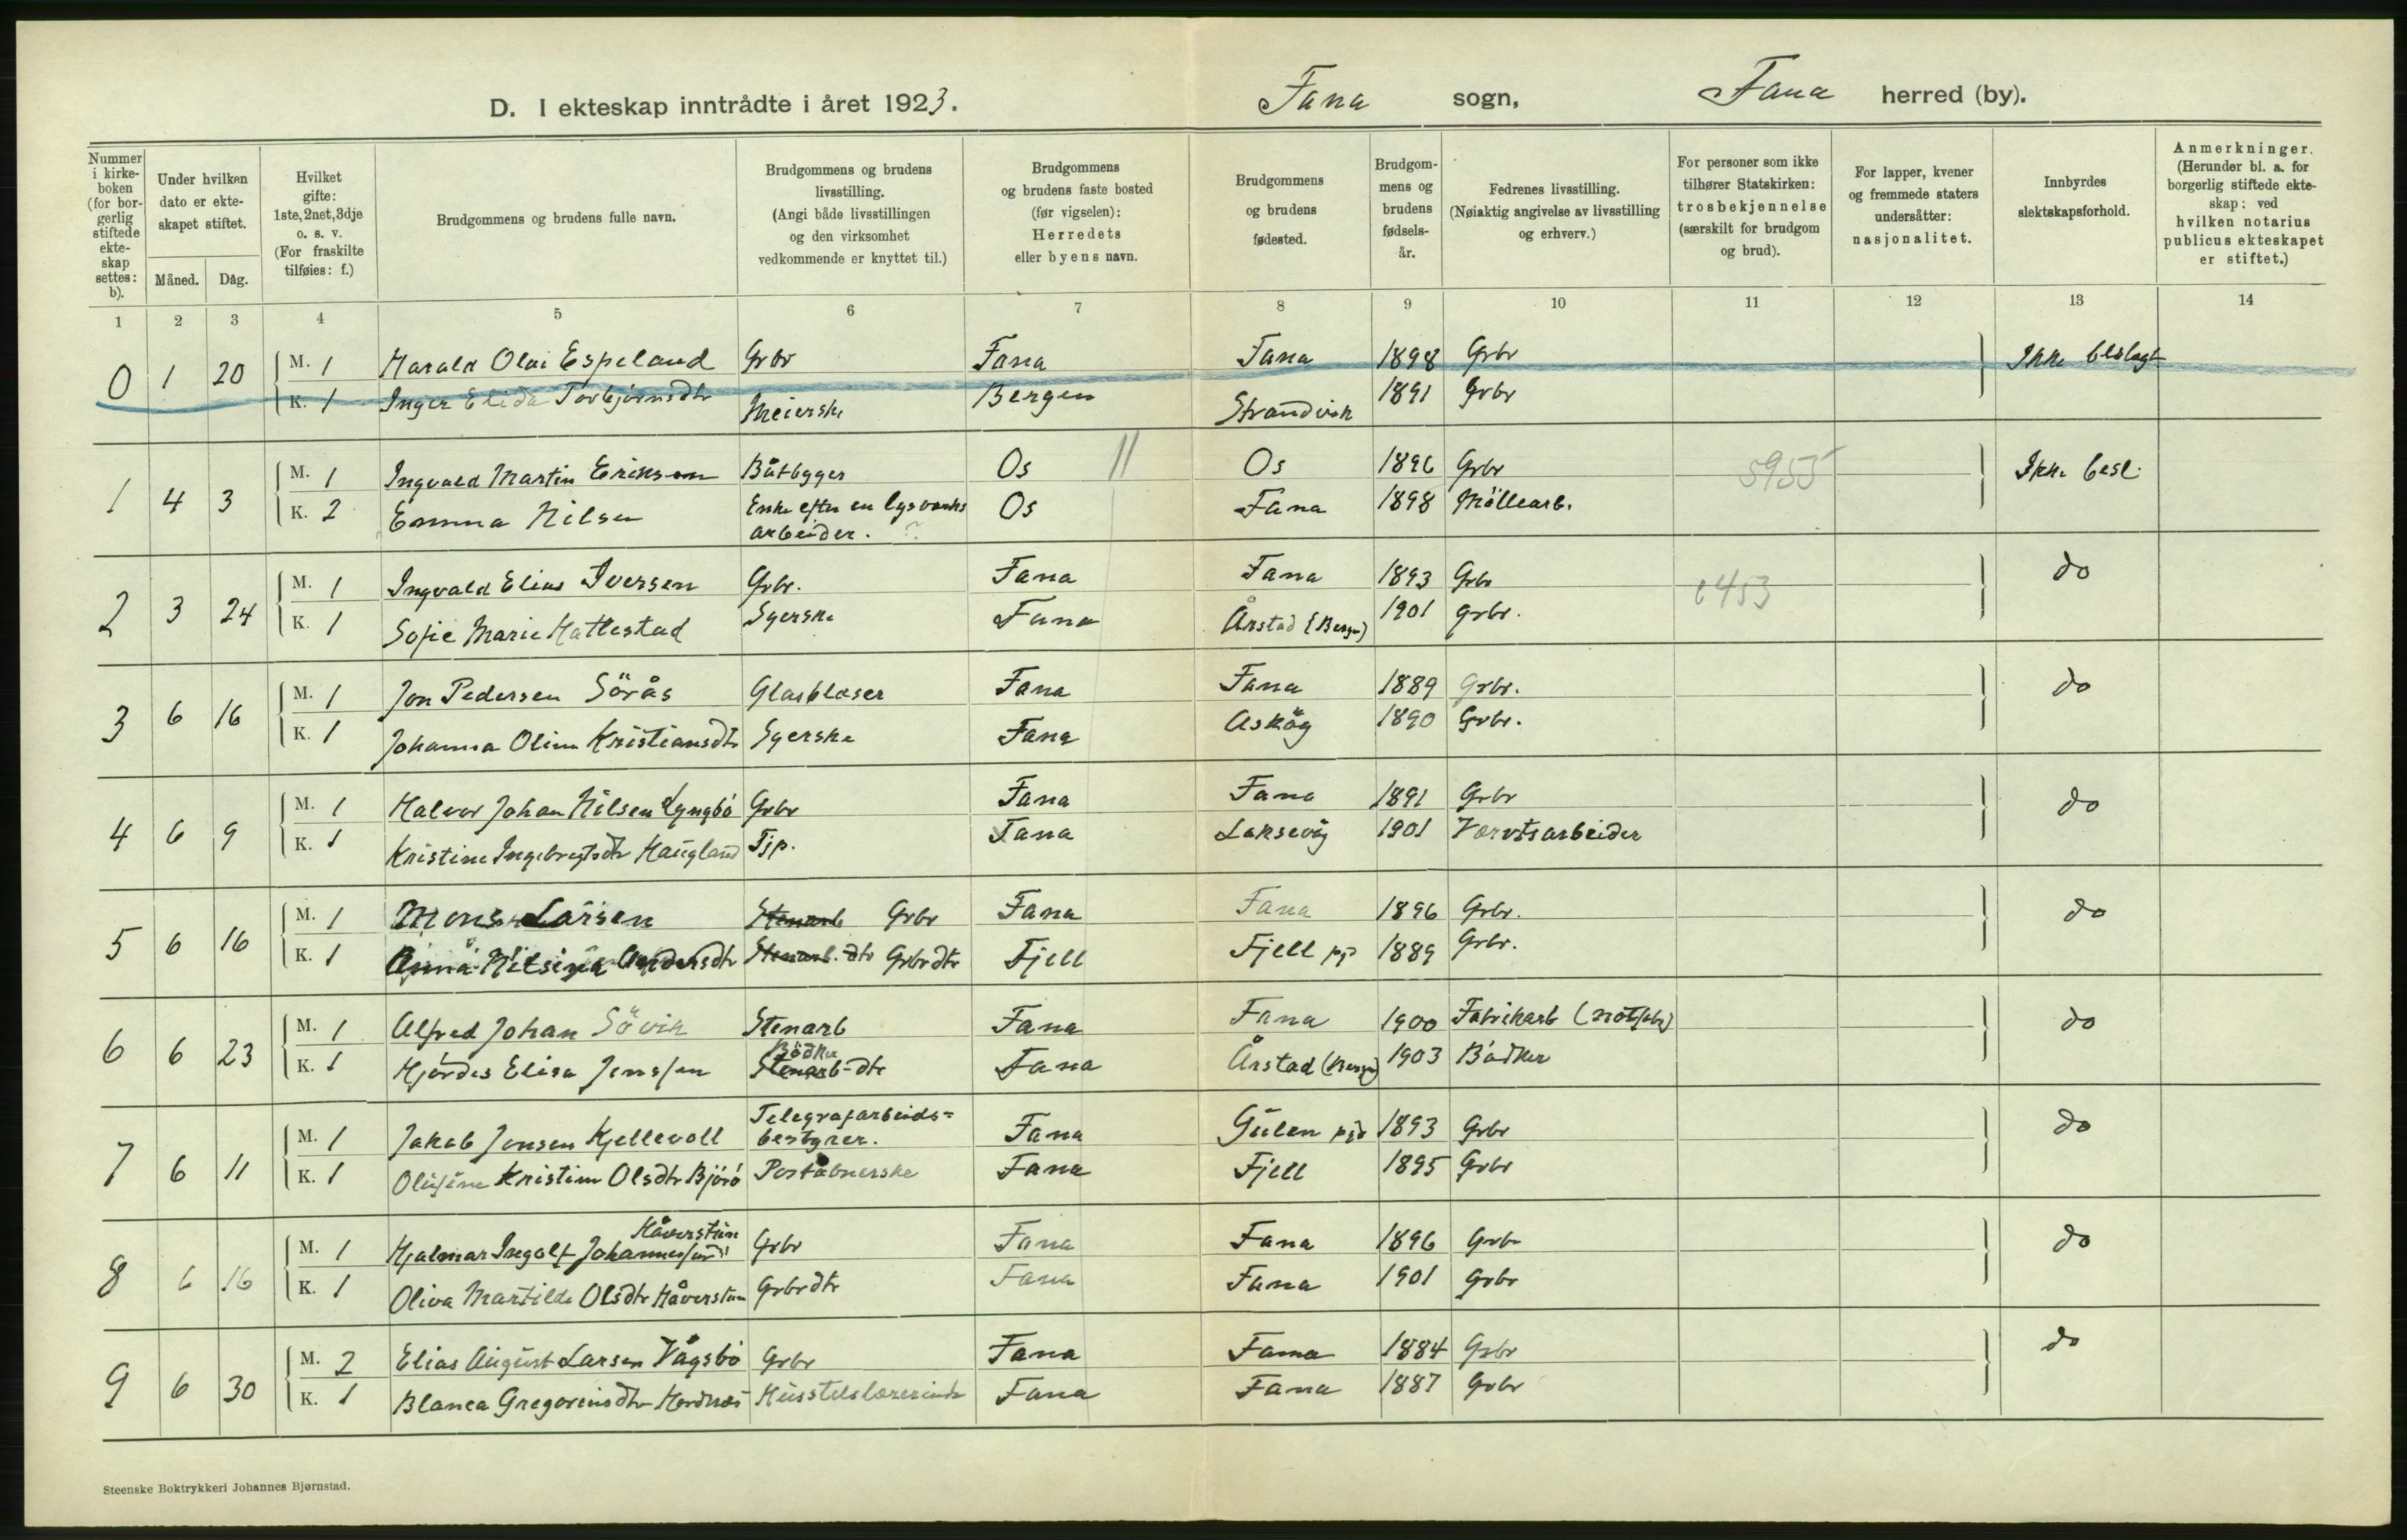 D. I ekteskap inntrådte i året 1923.
Fana sogn, Fana herred (by).
Nummer i kirkeboken (for borgerlig stiftede ekteskap settes: b).
Under hvilken dato er ekteskapet stiftet.
Måned. Dag.
Hvilket gifte: 1ste, 2net, 3dje o. s. v. (For fraskilte tilføies: f.)
Brudgommens og brudens fulle navn.
Brudgommens og brudens livsstilling. (Angi både livsstillingen og den virksomhet vedkommende er knyttet til.)
Brudgommens og brudens faste bosted (før vigselen): Herredets eller byens navn.
Brudgommens og brudens fødested.
Brudgommens og brudens fødselsår.
Fedrenes livsstilling. (Nøiaktig angivelse av livsstilling og erhverv.)
For personer som ikke tilhører Statskirken: trosbekjennelse (særskilt for brudgom og brud).
For lapper, kvener og fremmede staters undersåtter: nasjonalitet.
Innbyrdes slektskapsforhold.
Anmerkninger. (Herunder bl. a. for borgerlig stiftede ekteskap: ved hvilken notarius publicus ekteskapet er stiftet.)
1 2 3 4 5 6 7 8 9 10 11 12 13 14
0 1 20 M. 1 Harald Olai Espeland Grbr Fana Fana 1898 Grbr Ikke beslegt
K. 1 Inger Elida Torbjörnsdtr Meierske Bergen Strandvik 1891 Grbr
1 4 3 M. 1 Ingvald Martin Eriksen Båtbygger Os Os 1896 Grbr 5955 Ikke besl.
K. 2 Emma Nilsen Enke efter en lysverks arbeider. ? Os Fana 1898 Möllearb.
2 3 24 M. 1 Ingvald Elias Iversen Grbr. Fana Fana 1893 Grbr 6453 do
K. 1 Sofie Marie Hattestad Syerske Fana Årstad (Bergen) 1901 Grbr.
3 6 16 M. 1 Jon Pedersen Sörås Glasblåser Fana Fana 1889 Grbr. do
K. 1 Johanna Oline Kristiansdtr Syerske Fana Asköy 1890 Grbr.
4 6 9 M. 1 Halvor Johan Nilsen Lyngbö Grbr Fana Fana 1891 Grbr do
K. 1 Kristine Ingebrigtsdtr Haugland Tjp. Fana Laksevåg 1901 Værvtsarbeider
5 6 16 M. 1 Mons Larsen Stenarb Grbr Fana Fana 1896 Grbr. do
K. 1 Anna Nilsina Andersdtr Stenarb.-dtr Grbrdtr Fjell Fjell pgj 1889 Grbr.
6 6 23 M. 1 Alfred Johan Sövik Stenarb Fana Fana 1900 Fabrikarb do
K. 1 Hjördes Elisa Jenssen Bödker Stenarb-dtr Fana Årstad (Bergen) 1903 Bödker
7 6 11 M. 1 Jakob Jonsen Kjellevoll Telegrafarbeids= bestyrer. Fana Gulen pgj 1893 Grbr do
K. 1 Olufine Kristine Olsdtr Björö Poståbnerske Fana Fjell 1895 Grbr
8 6 16 M. 1 Hjalmar Ingolf Johannessen Håverstun Grbr Fana Fana 1896 Grbr do
K. 1 Oliva Martilde Olsdtr Håverstun Grbrdtr Fana Fana 1901 Grbr
9 6 30 M. 2 Elias August Larsen Vågsbö Grbr Fana Fana 1884 Grbr do
K. 1 Blanca Gregoriusdtr Hordnes Husstelslærerinde Fana Fana 1887 Grbr
Steenske Boktrykkeri Johannes Bjørnstad.